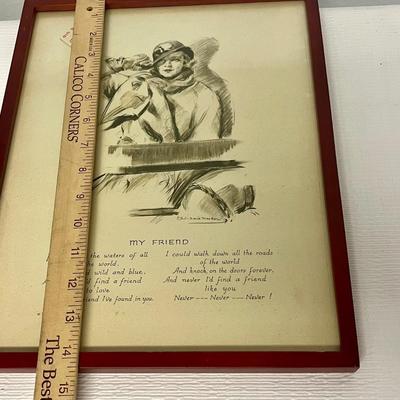 CALICO CORNERS
The Best
1
2
3
4
5
6
7
8
9
10
11
12
13
14
15
MY FRIEND
the waters of all
the world,
d wild and blue,
I'd find a friend
to love
friend I've found in you.
I could walk down all the roads
of the world
And knock on the doors forever,
And never I'd find a friend
like you
Never --- Never --- Never !